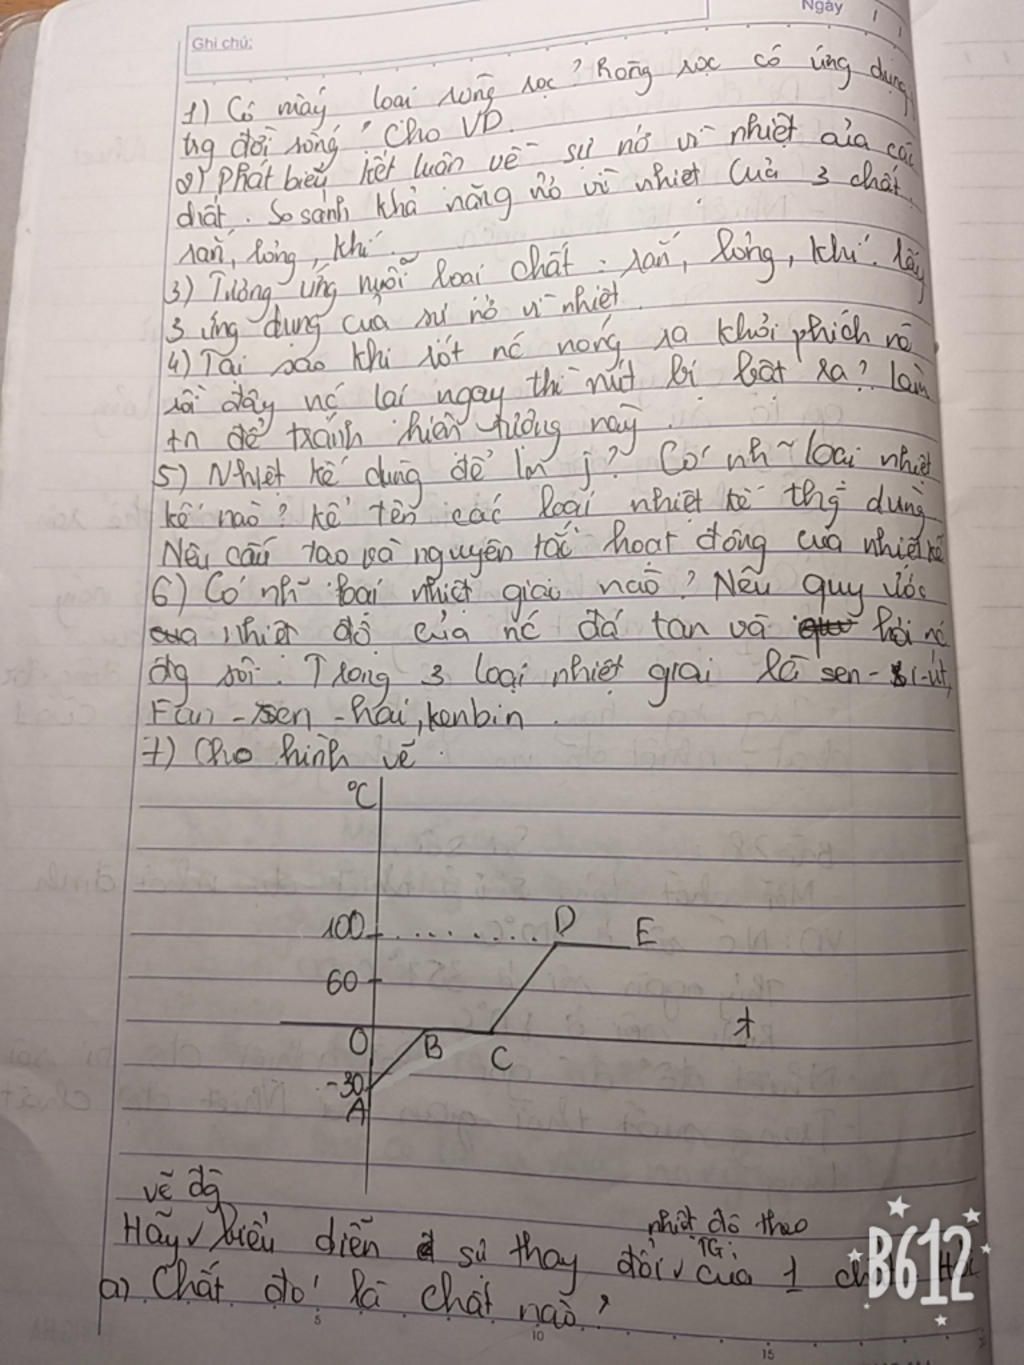 Ngày
Ghi chú:
1) Có mấy loại ròng rọc? Ròng rọc có ứng dụng
trg đời sống? Cho VD.
2) Phát biểu kết luận về sự nở vì nhiệt của các
chất. So sánh khả năng nở vì nhiệt của 3 chất
rắn, lỏng, khí.
3) Tương ứng mỗi loại chất: rắn, lỏng, khí. lấy
3 ứng dụng của sự nở vì nhiệt.
4) Tại sao khi rót nc nóng ra khỏi phích
rồi đậy nc lại ngay thì nút bị bật ra? Làm
tn để tránh hiện tượng này.
5) Nhiệt kế dùng để lm j? Có nh~ loại nhiệt
kế nào? Kể tên các loại nhiệt kế thg dùng
Nêu cấu tạo và nguyên tắc hoạt động của nhiệt kế
6) Có nh~ loại nhiệt giai nào? Nêu quy ước
nhiệt độ của nc đá tan và hơi nc
đg sôi. Trong 3 loại nhiệt giai là sen-si-út,
Fan-sen-hai, kenbin.
7) Cho hình vẽ
°C
100
D
E
60
O
B
C
t
-30
A
vẽ đg
nhiệt độ theo
TG
Hãy biểu diễn sử thay đổi của 1
a) Chất đó là chất nào?
B612
5
10
15